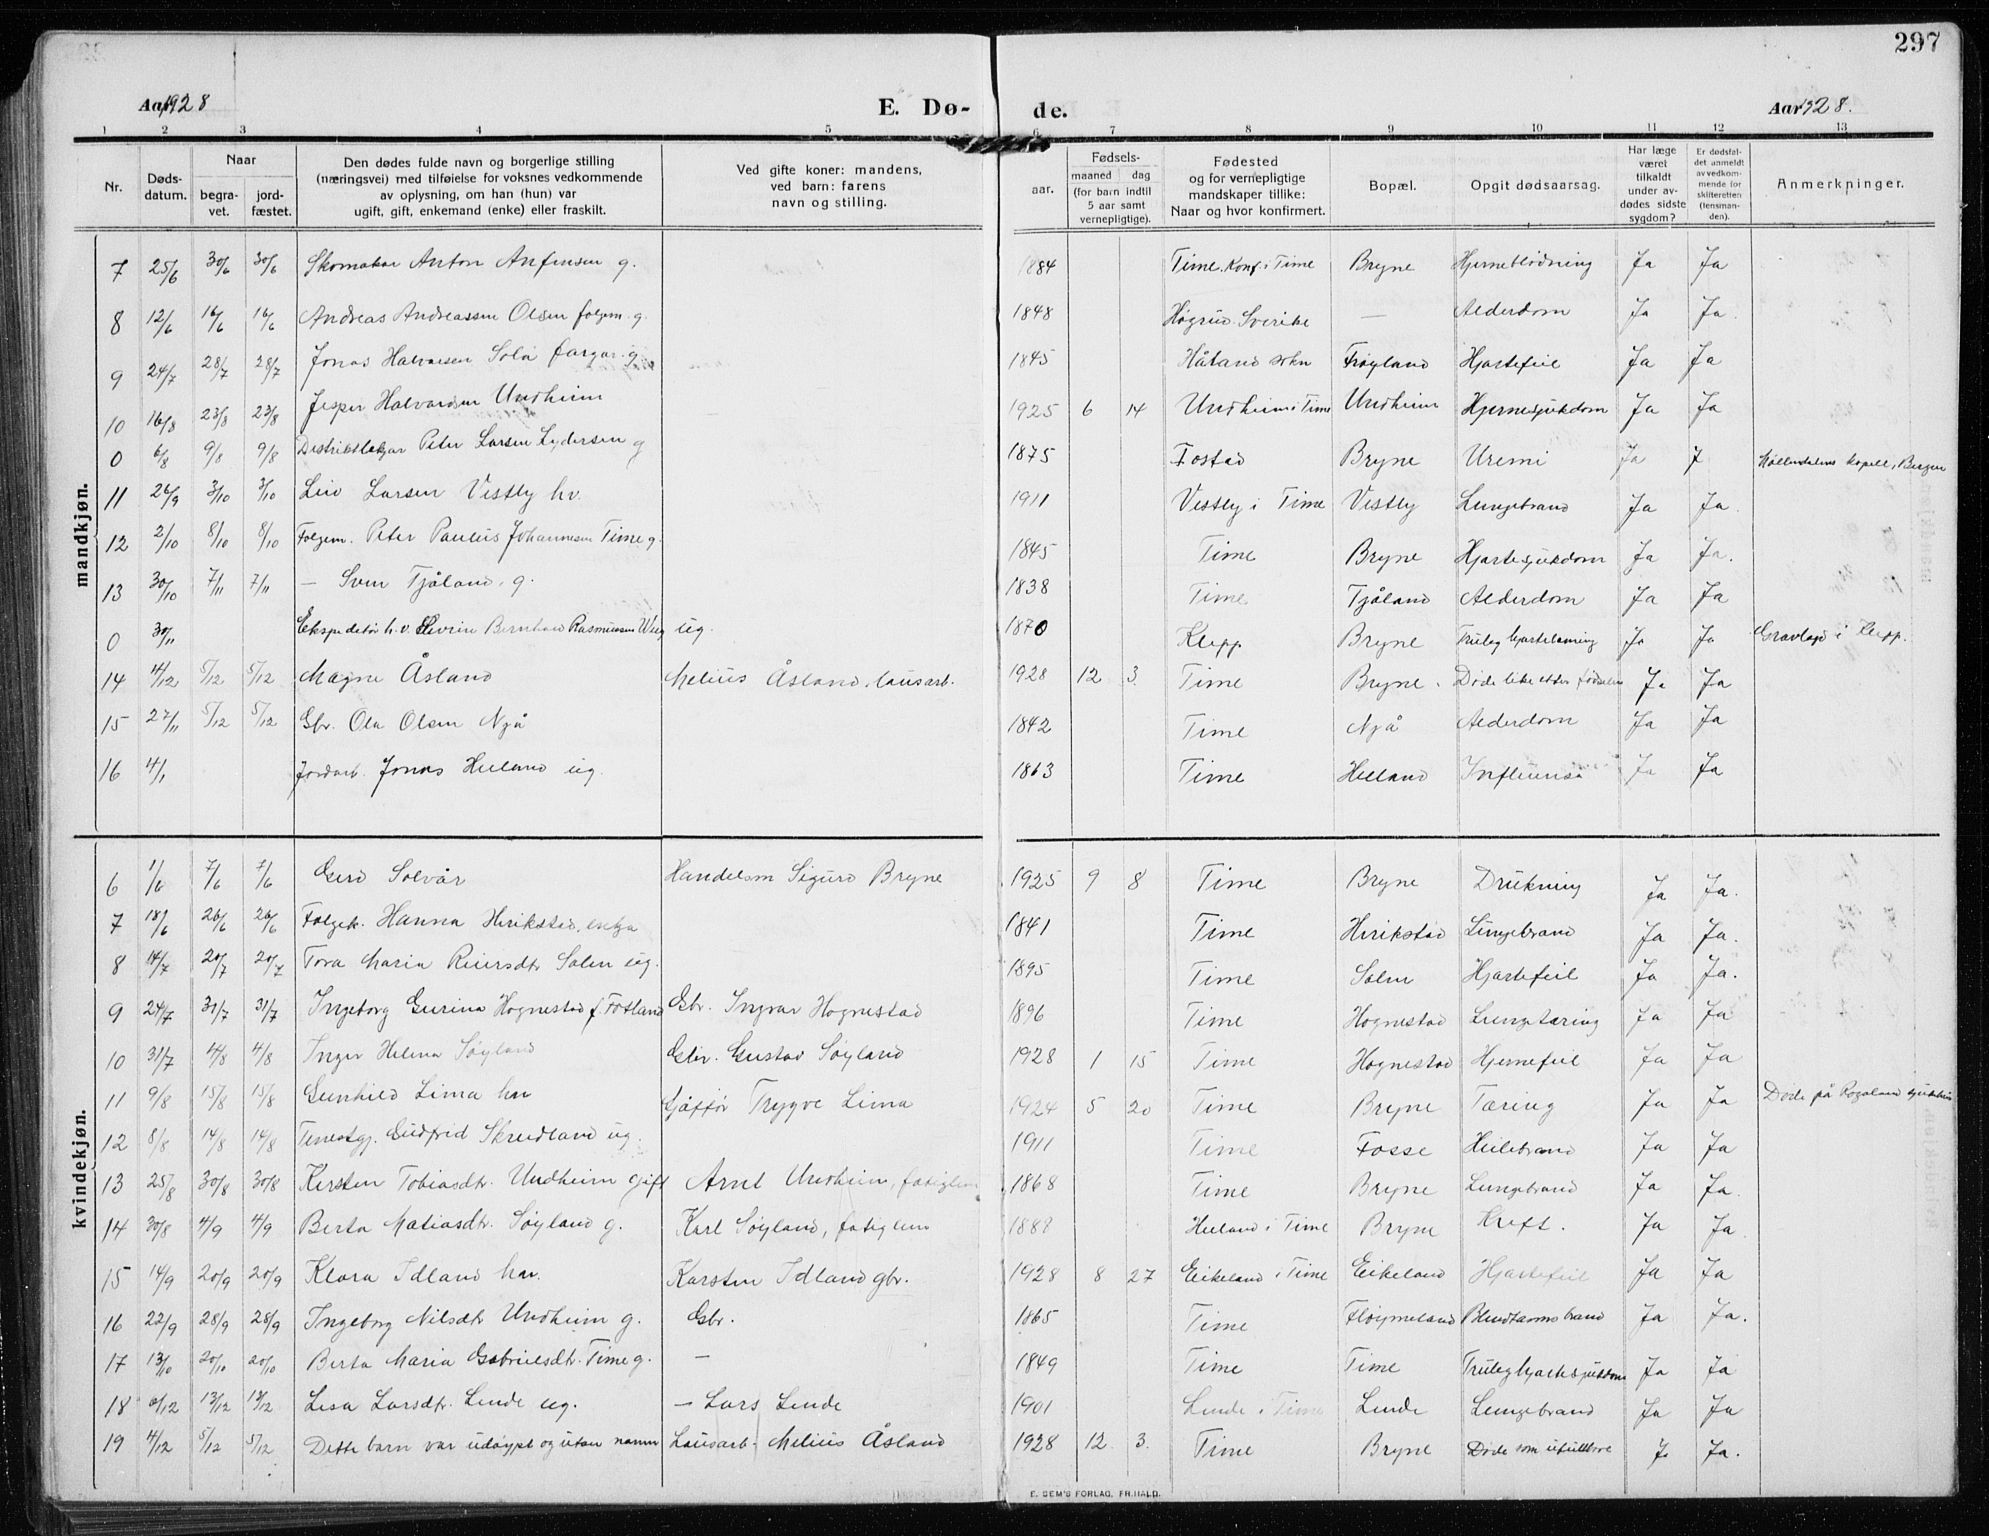 297
Aar 1928
E. Dø-
de.
Aar 1928.
1 2 3 4 5 6 7 8 9 10 11 12 13
Nr.
Døds-
datum.
Naar
begra-
vet.
jord-
fæstet.
Den dødes fulde navn og borgerlige stilling
(næringsvei) med tilføielse for voksnes vedkommende
av oplysning, om han (hun) var
ugift, gift, enkemand (enke) eller fraskilt.
Ved gifte koner: mandens,
ved barn: farens
navn og stilling.
aar.
Fødsels-
maaned dag
(for barn indtil
5 aar samt
vernepligtige).
Fødested
og for vernepligtige
mandskaper tillike:
Naar og hvor konfirmert.
Bopæl.
Opgit dødsaarsag.
Har læge
været
tilkaldt
under av-
dødes sidste
sygdom?
Er dødsfal-
det anmeldt
av vedkom-
mende for
skifteretten
(lensman-
den).
Anmerkninger.
mandkjøn.
7 25/6 30/6 30/6 Skomakar Anton Anfinsen g. 1884 Time. Konf. i Time Bryne Hjerneblødning Ja Ja
8 12/6 16/6 16/6 Andreas Andreassen Olsen folgem. g. 1848 Høgrud Sverike — Alderdom Ja Ja.
9 24/7 28/7 28/7 Jonas Halvorsen Sola fargar g. 1845 Håland sokn Frøyland Hjartefeil Ja Ja
10 16/8 23/8 23/8 Jesper Halvardsen Undheim 1925 6 14 Undheim i Time Undheim Hjernesjukdom Ja Ja
0 6/8 9/8 9/8 Distriktslækjar Peter Larsen Lydersen g 1875 Fostad Bryne Uremi Ja J Møllendalens kapell, Bergen
11 26/9 3/10 3/10 Leiv Larsen Vestly hv. 1911 Vestly i Time Vestly Lungebrand Ja Ja.
12 2/10 8/10 8/10 Folgem. Peter Paulus Johannesen Time g. 1845 Time Bryne Hjartesjukdom Ja Ja.
13 30/10 7/11 7/11 — Sven Tjåland, g. 1838 Time Tjåland Alderdom Ja Ja
0 30/11 Ekspeditør h.v. Severin Bernhard Rasmussen Wiig ug. 1870 Klepp Bryne Truleg hjartelaming Ja Ja Gravlagd i Klepp.
14 4/12 5/12 5/12 Magne Åsland Melius Åsland, lausarb. 1928 12 3. Time Bryne. Døde like etter fødselen Ja Ja
15 27/11 5/12 5/12 Gbr. Ola Olsen Njå 1842 Time Njå Alderdom Ja Ja
16 4/1 Jordarb. Jonas Heiland ug. 1863 Time Helland Influensa Ja Ja
kvindekjøn.
6 1/6 7/6 7/6 Gerd Solvår Handelsm Sigurd Bryne 1925 9 8 Time Bryne Drukning Ja Ja.
7 18/6 26/6 26/6 Folgek. Hanna Herikstad, enkja 1841 Time Herikstad Lungebrand Ja Ja.
8 14/7 20/7 20/7 Tora Maria Reiersdtr Salen ug. 1895 Time Salen Hjartefeil Ja Ja.
9 24/7 31/7 31/7 Ingeborg Gurina Hognestad f. Fotland Gbr. Ingvar Hognestad 1896 Time Hognestad Lungetæring Ja Ja
10 31/7 4/8 4/8 Inger Helena Søyland Gbr. Gustav Søyland 1928 1 15 Time Hognestad Hjernefeil Ja Ja
11 9/8 15/8 15/8 Gunhild Lima hm Sjåffør Trygve Lima 1924 5 20 Time Bryne Tæring Ja Ja Døde på Rogaland sjukehus
12 8/8 14/8 14/8 Tenestgj. Gudfrid Skrudland ug. 1911 Time Fosse Heilebrand Ja Ja
13 25/8 30/8 30/8 Kirsten Tobiasdtr. Undheim gift Arne Undheim, fatiglem 1868 Time Bryne Lungebrand Ja Ja.
14 30/8 4/9 4/9 Berta Matiasdtr. Søyland g. Karl Søyland, fatiglem 1888 Heiland i Time Bryne Kreft. Ja Ja
15 14/9 20/9 20/9 Klara Idland hm. Karsten Idland gbr. 1928 8 27 Eikeland i Time Eikeland Hjartefeil Ja Ja
16 22/9 28/9 28/9 Ingeborg Nilsdtr Undheim g. Gbr. 1865 Time Fløymeland Blindtarmsbrand Ja Ja.
17 13/10 20/10 20/10 Berta Maria Gabrielsdtr. Time g. — 1849 Time Time Truleg hjartesjukdom Ja Ja
18 13/12 13/12 Lisa Larsdtr. Linde ug. — Lars Linde 1901 Linde i Time Linde Lungebrand Ja Ja
19 4/12 5/12 5/12 Dette barn var udøypt og utan namn Lausarb. Melius Åsland 1928 12 3. Time Bryne Døde som ufullbore J Ja.
E. SEM'S FORLAG, FR.HALD.